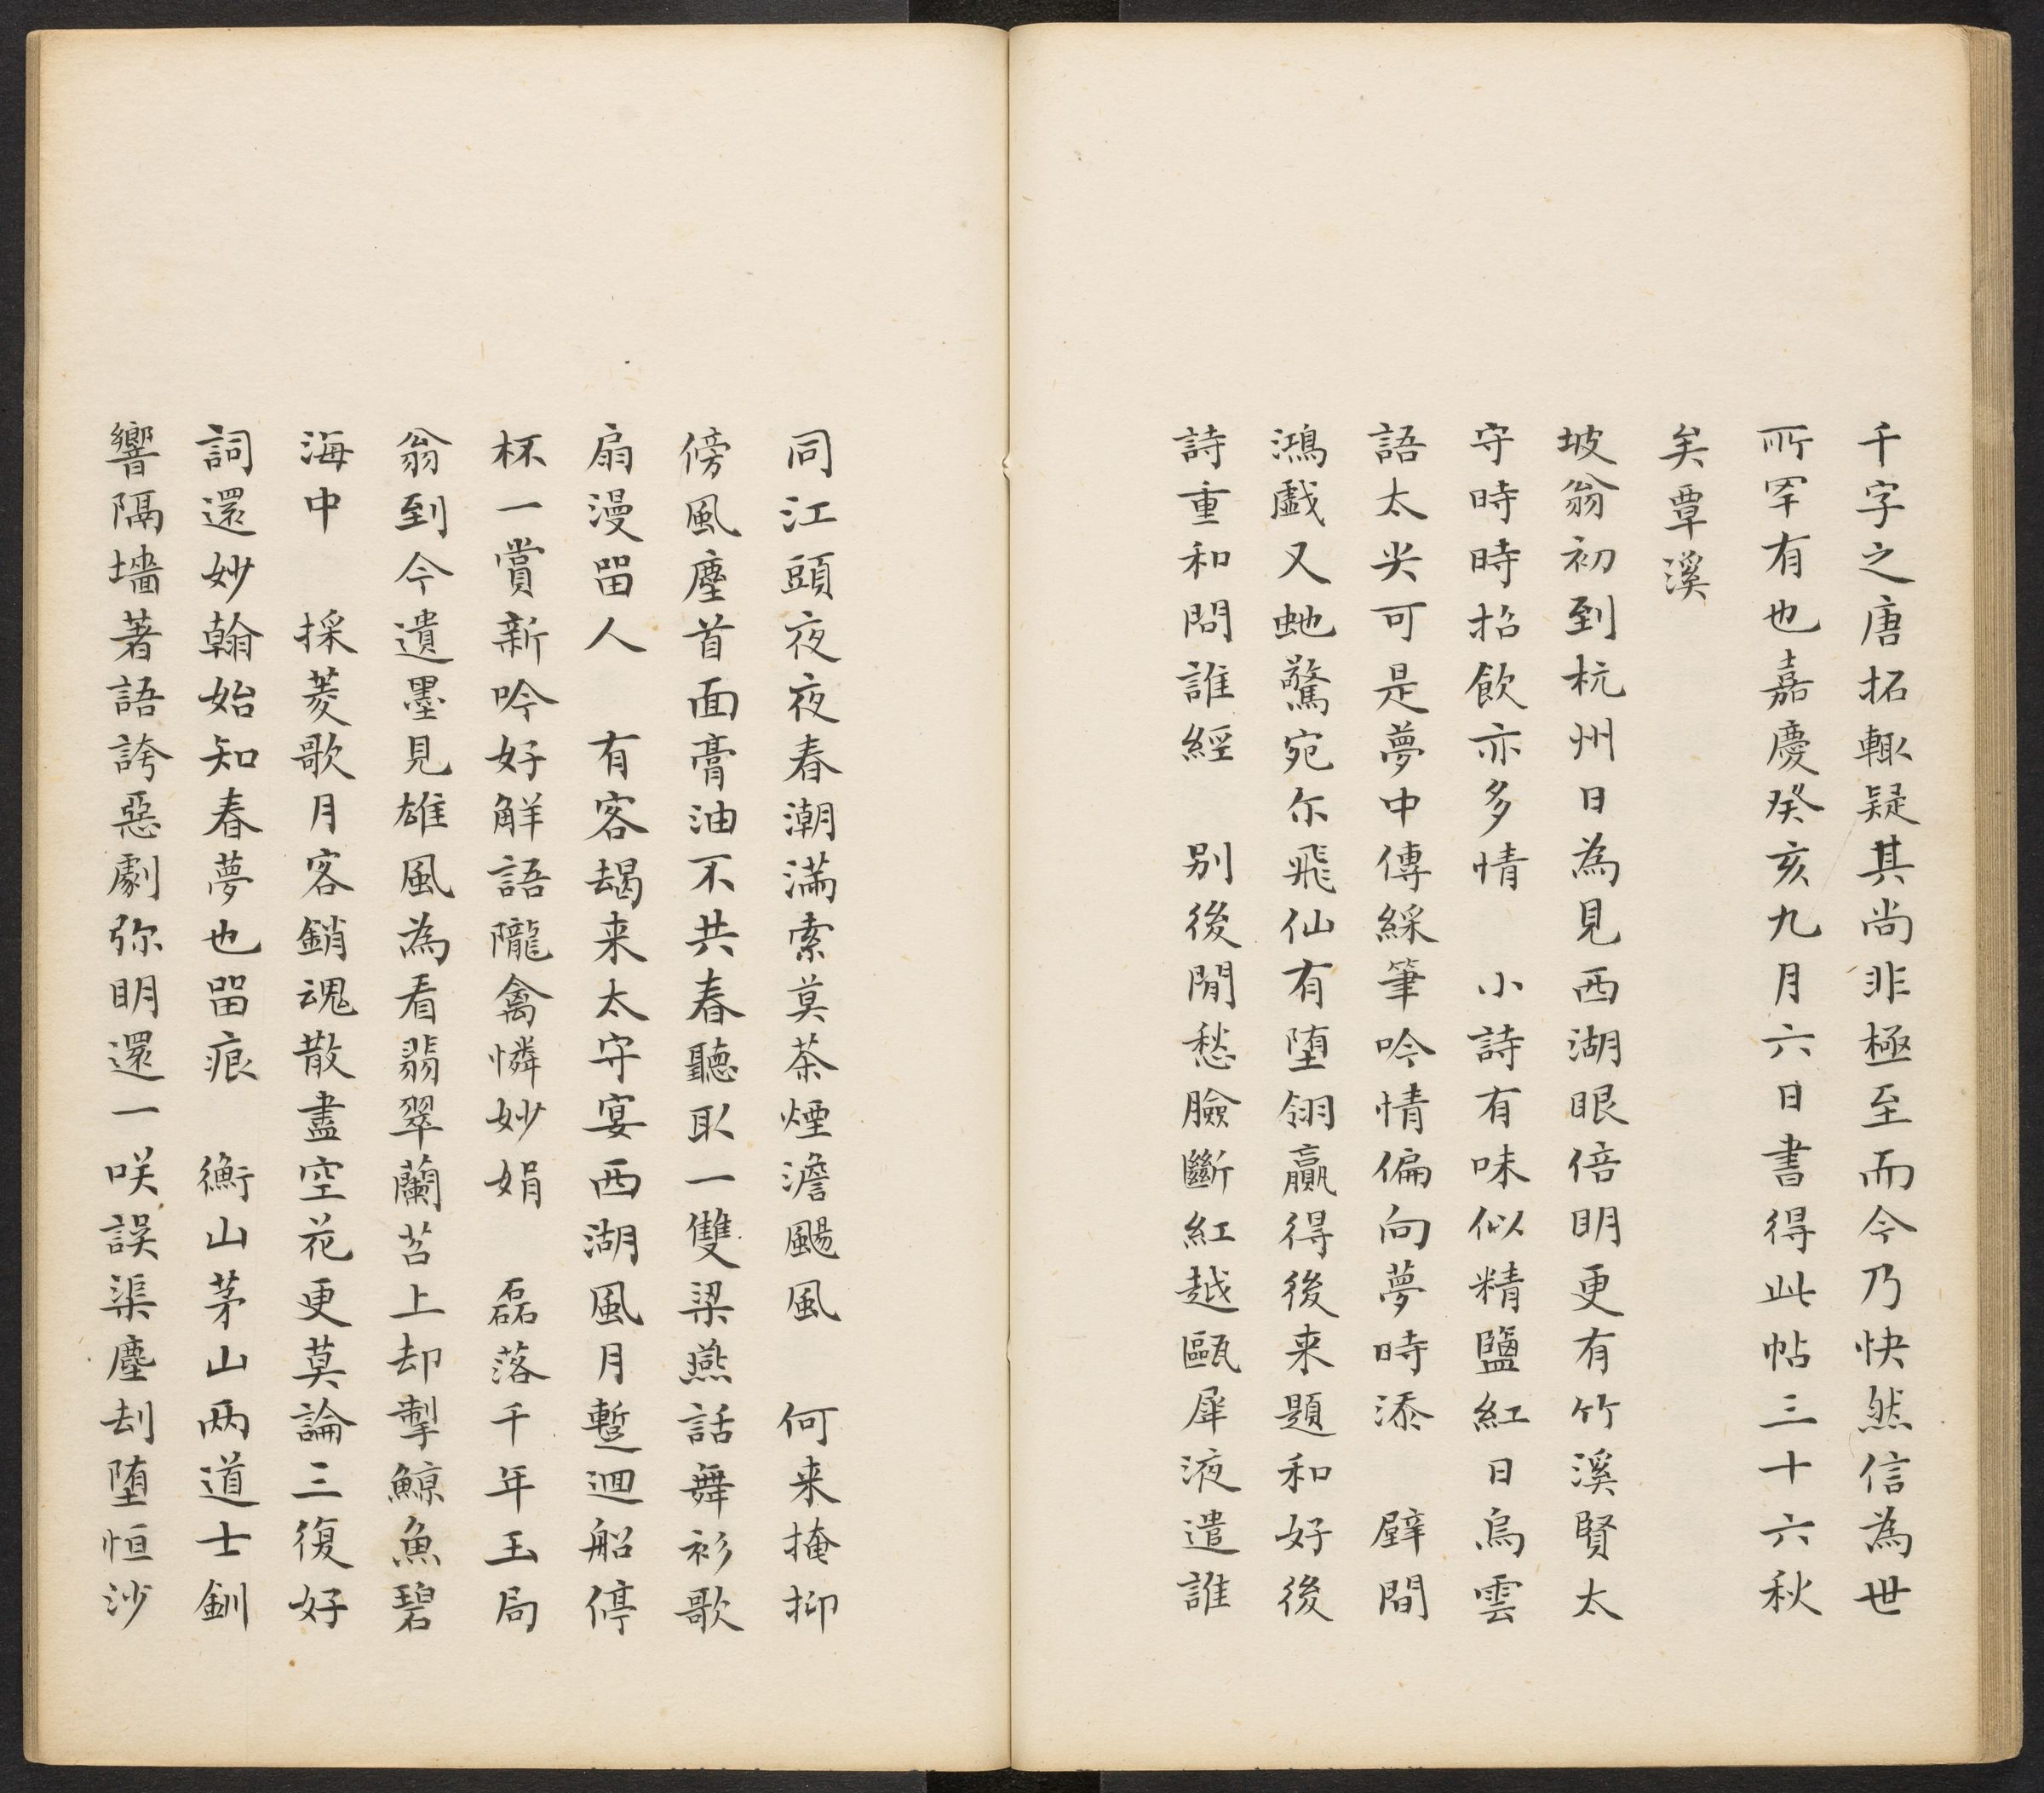 千字之唐拓輒疑其尚非極至而今乃快然信為世
所罕有也嘉慶癸亥九月六日書得此帖三十六秋
矣覃溪
坡翁初到杭州日為見西湖眼倍明更有竹溪賢太
守時時招飲亦多情　小詩有味似精鹽紅日烏雲
語太尖可是夢中傳綵筆吟情偏向夢時添　壁間
鴻戲又虵驚宛尓飛仙有堕翎贏得後来題和好後
詩重和問誰經　別後閒愁臉斷紅越甌犀液遣誰
同江頭夜夜春潮滿索莫茶煙澹颺風　何来掩抑
傍風塵首面膏油不共春聽取一雙梁燕話舞衫歌
扇漫畱人　有客朅来太守宴西湖風月蹔迴船停
杯一賞新吟好解語隴禽憐妙娟　磊落千年玉局
翁到今遺墨見雄風為看翡翠蘭苕上却掣鯨魚碧
海中　採菱歌月客銷魂散盡空花更莫論三復好
詞還妙翰始知春夢也畱痕　衡山茅山兩道士釧
響隔墻著語誇惡劇弥明還一咲誤渠塵刦堕恒沙